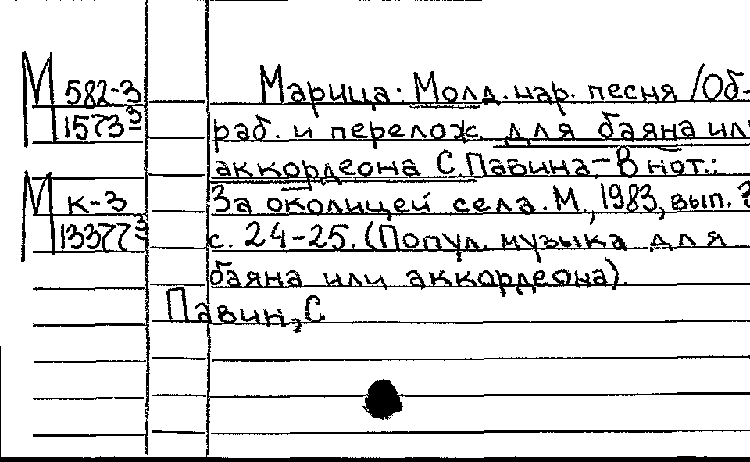 М 582-3
1573³
М к-3
13377³
Марица: Молд. нар. песня /Об-
раб. и перелож. для баяна или
аккордеона С. Павина. – В нот.:
За околицей села. М., 1983, вып. 3
с. 24-25. (Попул. музыка для
баяна или аккордеона).
Павин, С